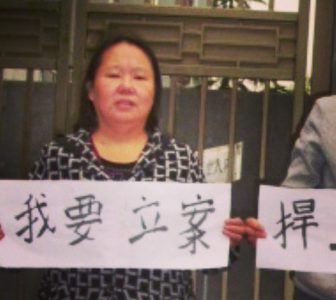 我要立案
捍